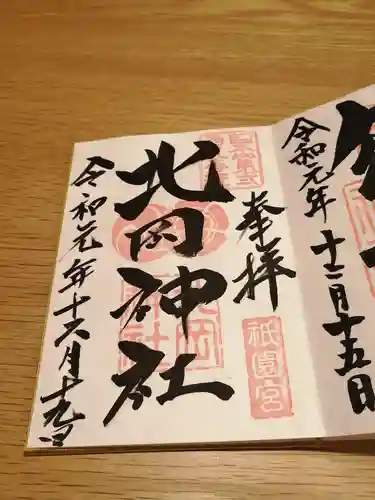 奉拝
北岡神社
祇園宮
北岡神社
令和元年十二月十九日
令和元年
十二月十五日